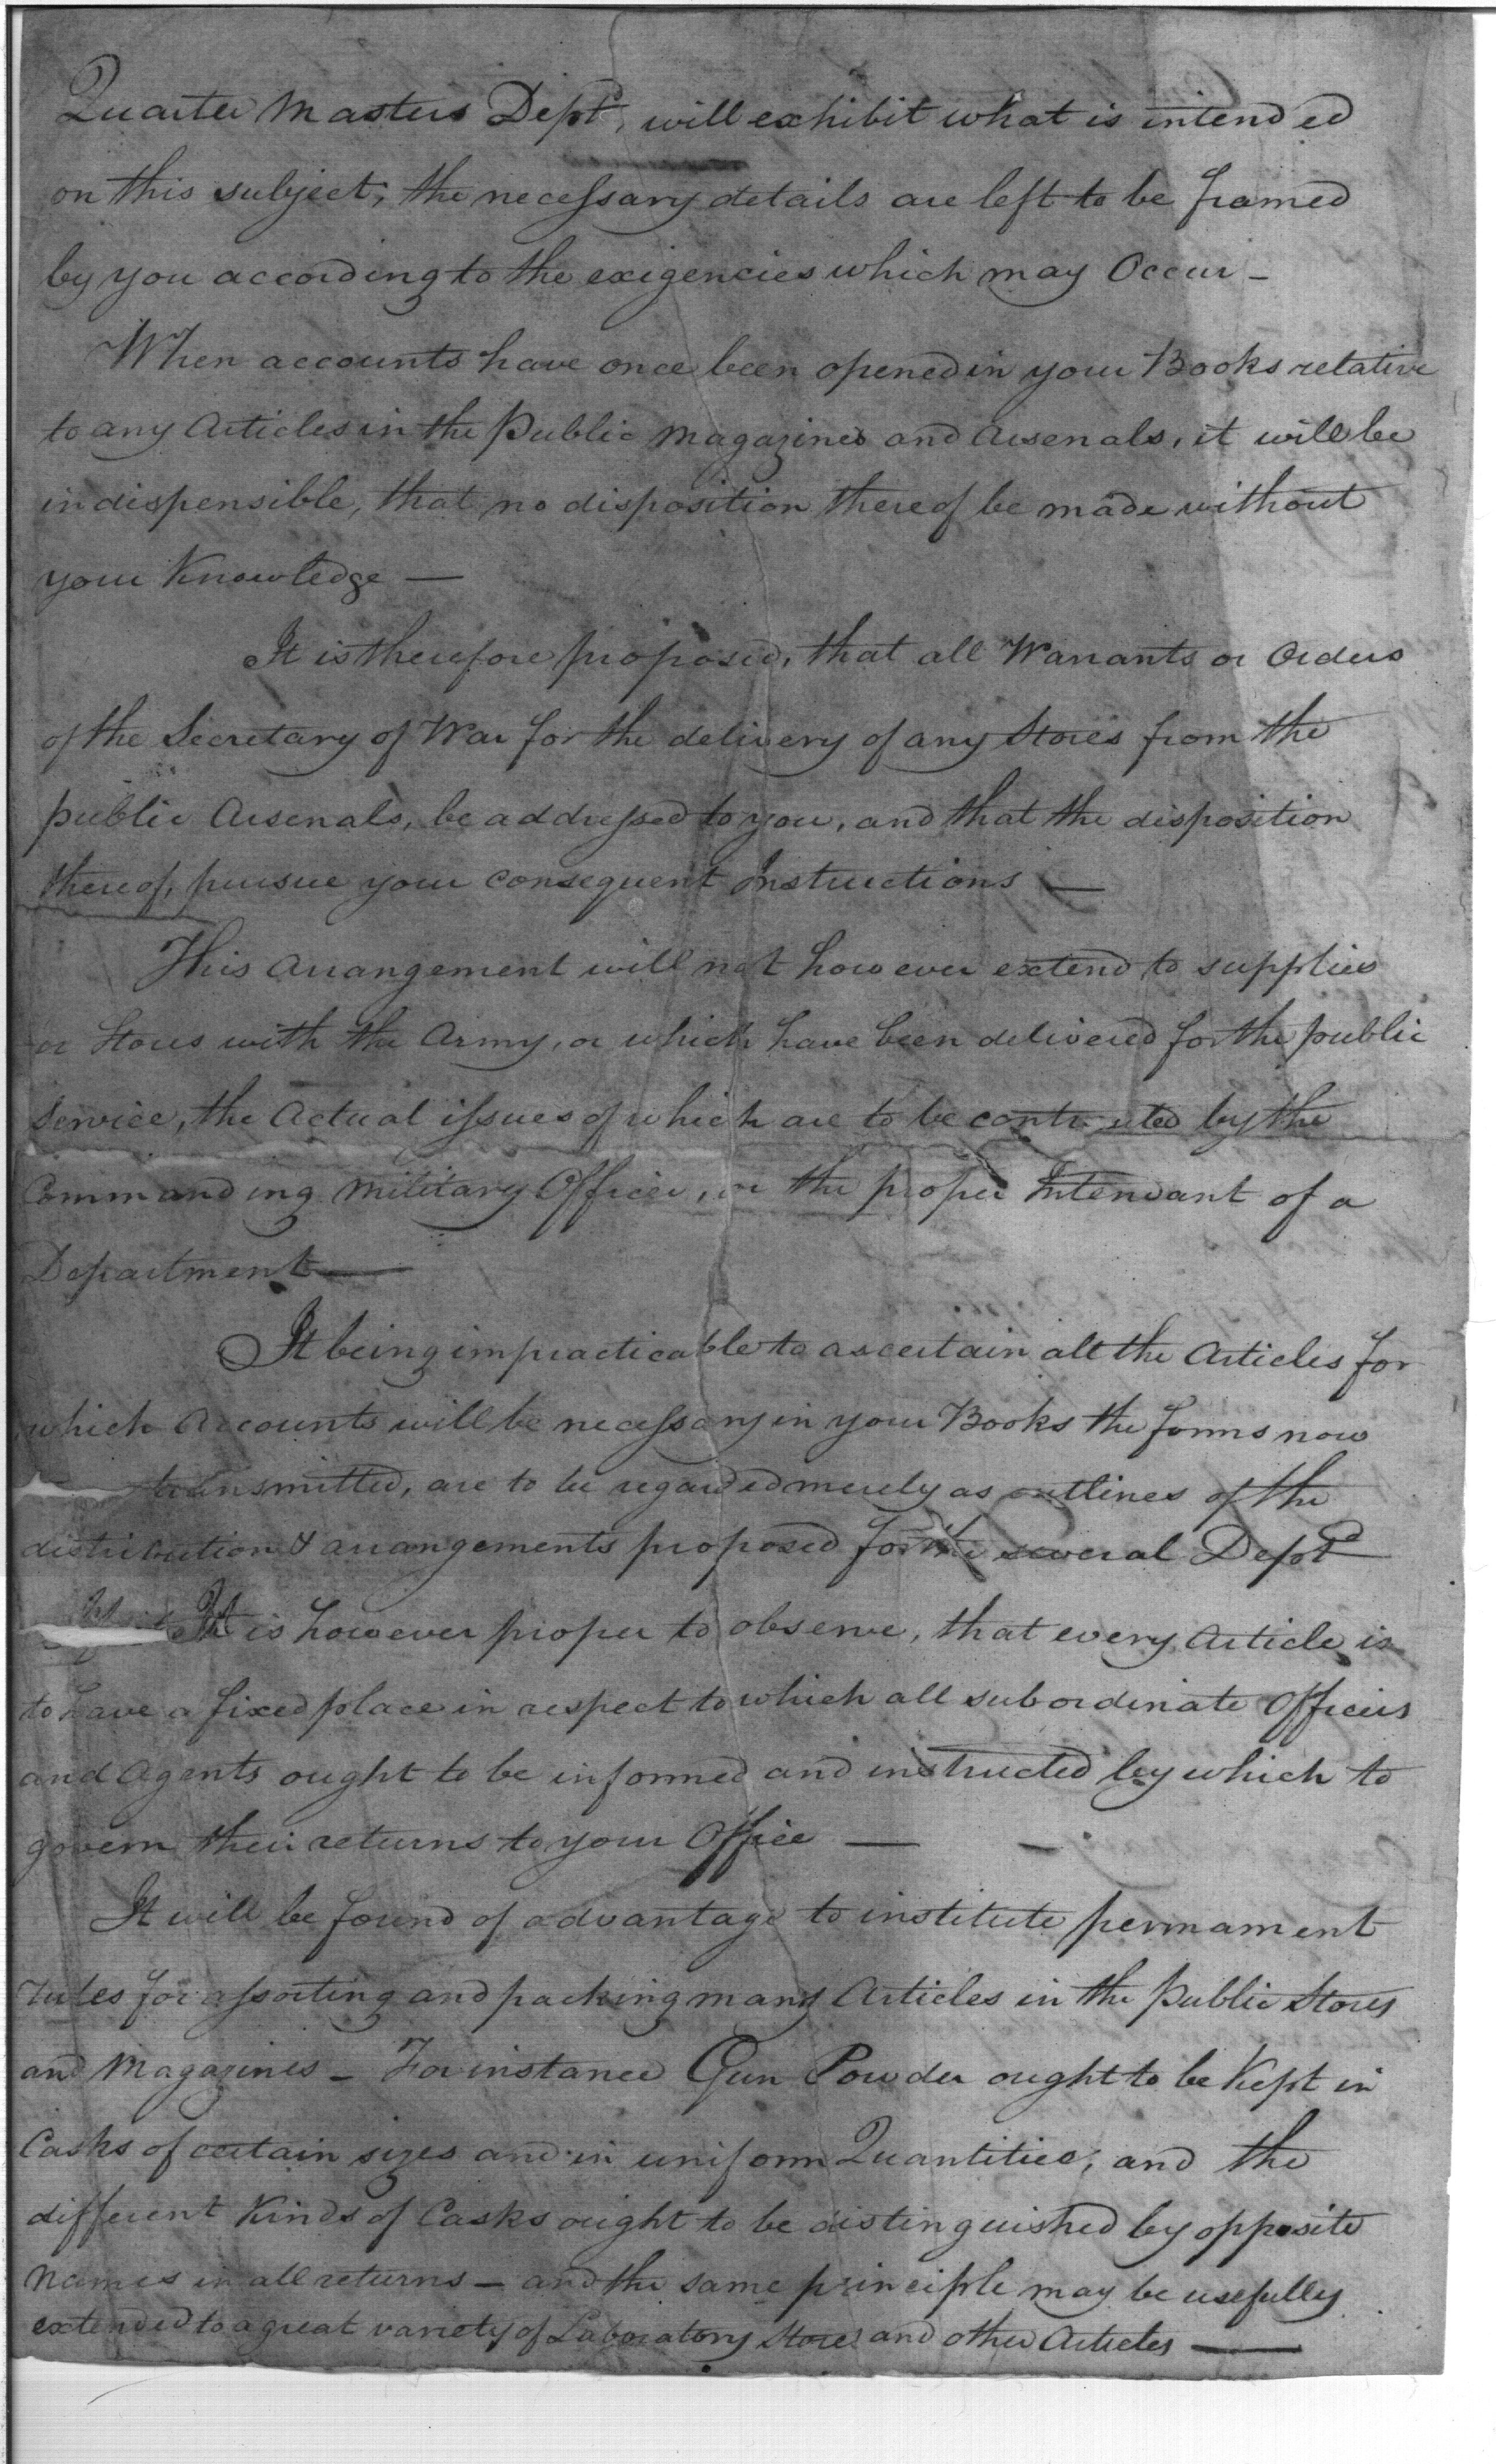 Quarter Masters Dept, will exhibit what is intended
on this subject; the necessary details are left to be framed
by you according to the exigencies which may Occur –
When accounts have once been opened in your Books relative
to any Articles in the Public Magazines and Arsenals, it will be
indispensible, that no disposition thereof be made without
your Knowledge —
It is therefore proposed, that all Warrants or Orders
of the Secretary of War for the delivery of any Stores from the
public Arsenals, be addressed to you, and that the disposition
thereof, pursue your consequent Instructions —
This Arrangement will not however extend to supplies
or Stores with the Army, or which have been delivered for the public
Service, the Actual issues of which are to be by the
Commanding Military Officer, or the proper Intendant of a
Department —
It being impracticable to ascertain all the Articles for
which Accounts will be necessary in your Books the forms now
transmitted, are to be regarded merely as outlines of the
distribution & arrangements proposed for the several Depts
It is however proper to observe, that every Article is
to have a fixed place in respect to which all subordinate Officers
and Agents ought to be informed and instructed by which to
govern their returns to your Office —
It will be found of advantage to institute permament
rules for assorting and packing many Articles in the Public Stores
and Magazines – For instance Gun Powder ought to be Kept in
Casks of certain sizes and in uniform Quantities, and the
different Kinds of Casks ought to be distinguished by opposite
Names in all returns – and the same principle may be usefully
extended to a great variety of Laboratory Stores and other Articles —